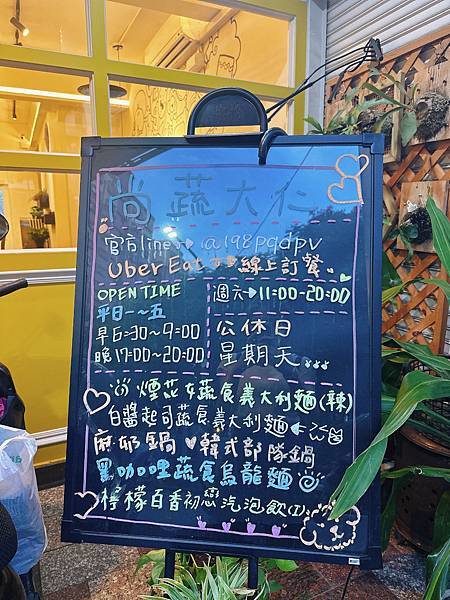 尚蔬大仁
官方line→@198pqdpv
Uber Eat→線上訂餐
OPEN TIME
平日一~五
早6:30~9:00
晚17:00~20:00
週六→11:00-20:00
公休日
星期天
煙花女蔬食義大利麵(辣)
白醬起司蔬食義大利麵
麻奶鍋♥韓式部隊鍋
黑咖哩蔬食烏龍麵
檸檬百香初戀汽泡飲(I)